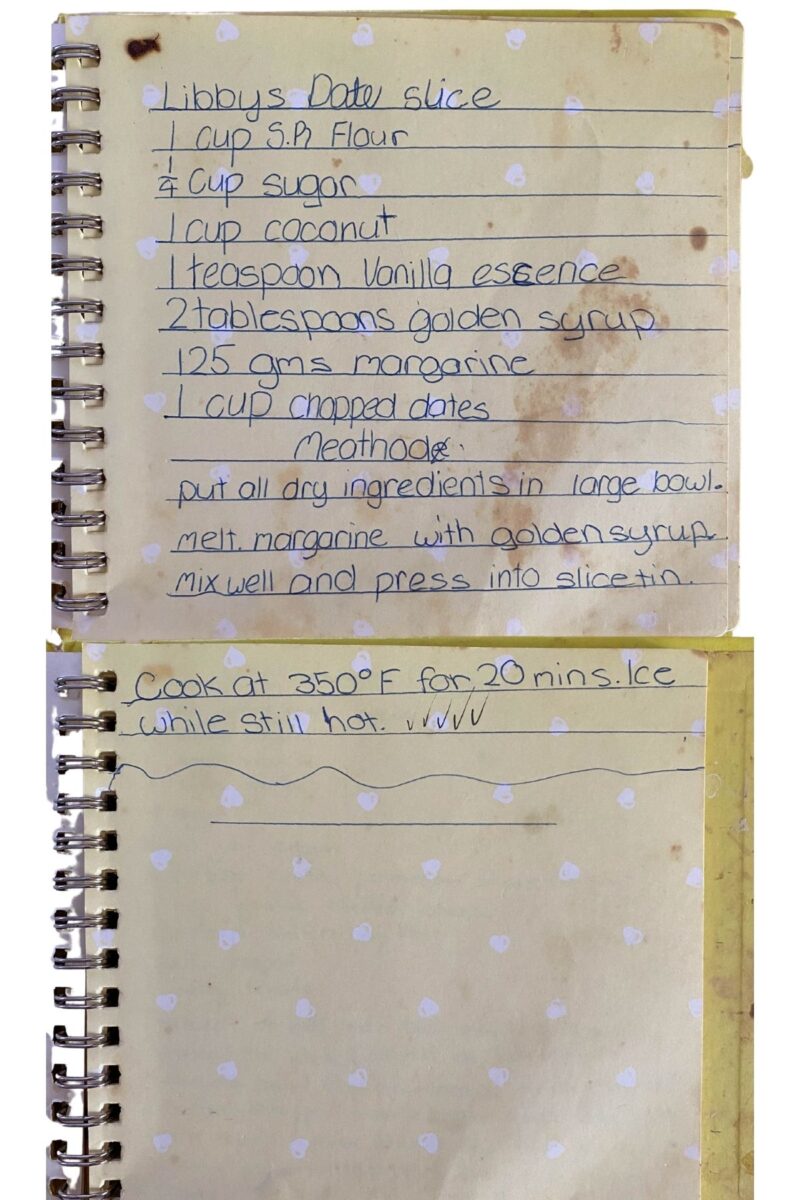 Libbys Date slice
1 cup S.R Flour
1/4 Cup sugar
1 cup coconut
1 teaspoon Vanilla essence
2 tablespoons golden syrup
125 gms margarine
1 cup chopped dates
Meathode.
put all dry ingredients in large bowl.
melt. margarine with golden syrup
mix well and press into slice tin.
Cook at 350°F for 20 mins. Ice
while still hot. ✓✓✓✓✓